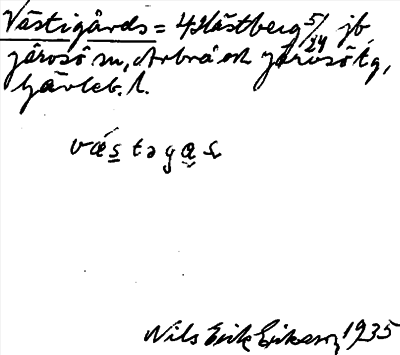 Västigårds = 4 Hästberg 5/24 jb
Järvsö sn, Arbrå och Järvsö tg,
Gävleb. l.
væstəgas
Nils Erik Erikson 1935